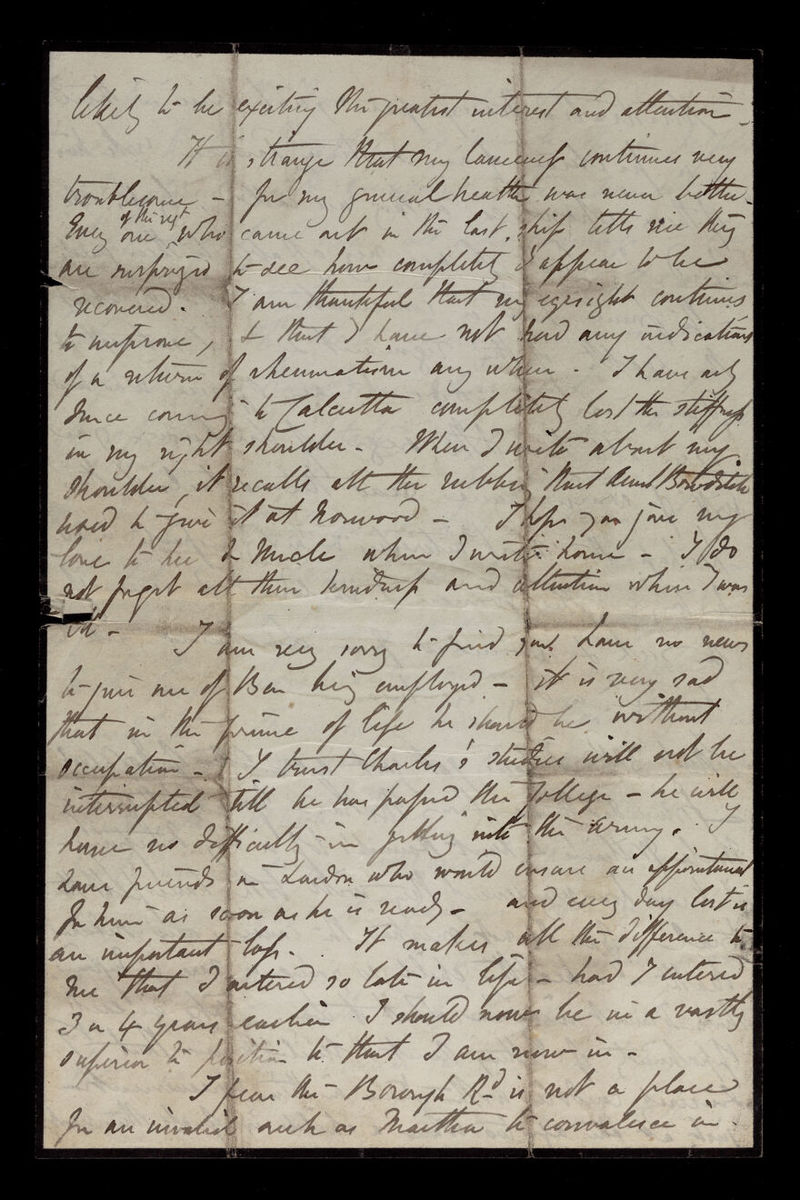 likely to be exciting the greatest interest and attention -
It is strange that my lameness continues very
troublesome - for my general health was never better.
Every one of the rest who came out in the last ship tells me they
are surprized to see how completely I appear to be
recovered. I am thankful that my eyesight continues
to improve, & that I have not had any indications
of a return of rheumatism any where. I have only
since coming to Calcutta completely lost the stiffness
in my right shoulder. When I write about my
shoulder, it recalls all the rubbing that Aunt Bowditch
used to give it at Norwood - I hope you give my
love to her & Uncle when I write home - I do
not forget all their kindness and attention when I was
ill - I am very sorry to find you have no news
to give me of Ben being employed - it is very sad
that in the prime of life he should be without
occupation - I trust Charles's studies will not be
interrupted till he has passed the College - he will
have no difficulty in getting into the army. I
have friends in London who would ensure an appointment
for him as soon as he is ready - and every day lost is
an important loss. It makes all the difference to
me that I entered so late in life - had I entered
3 or 4 years earlier I should now be in a vastly
superior position to that I am now in -
I fear the Borough Rd is not a place
for an invalid such as Martha to convalesce in -